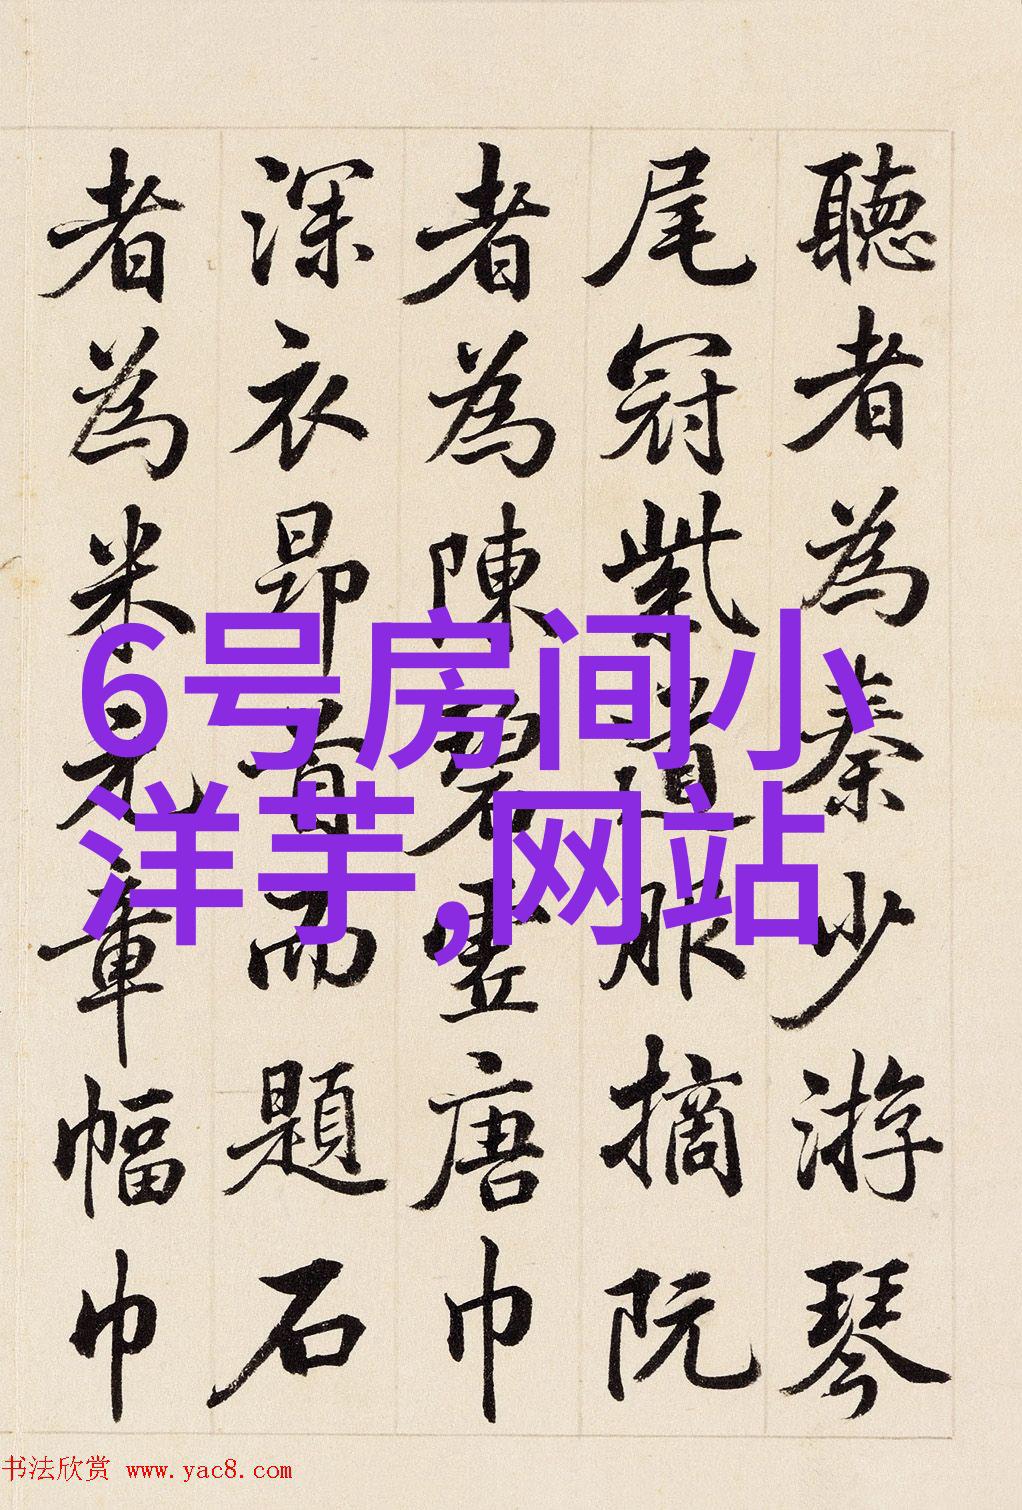 聽者為秦少游琴
尾冠紫道服摘阮
者為陳碧虛唐巾
深衣昂首而題石
者為米元章幅巾
6号房间小
洋芋,网站
书法欣赏 www.yac8.com